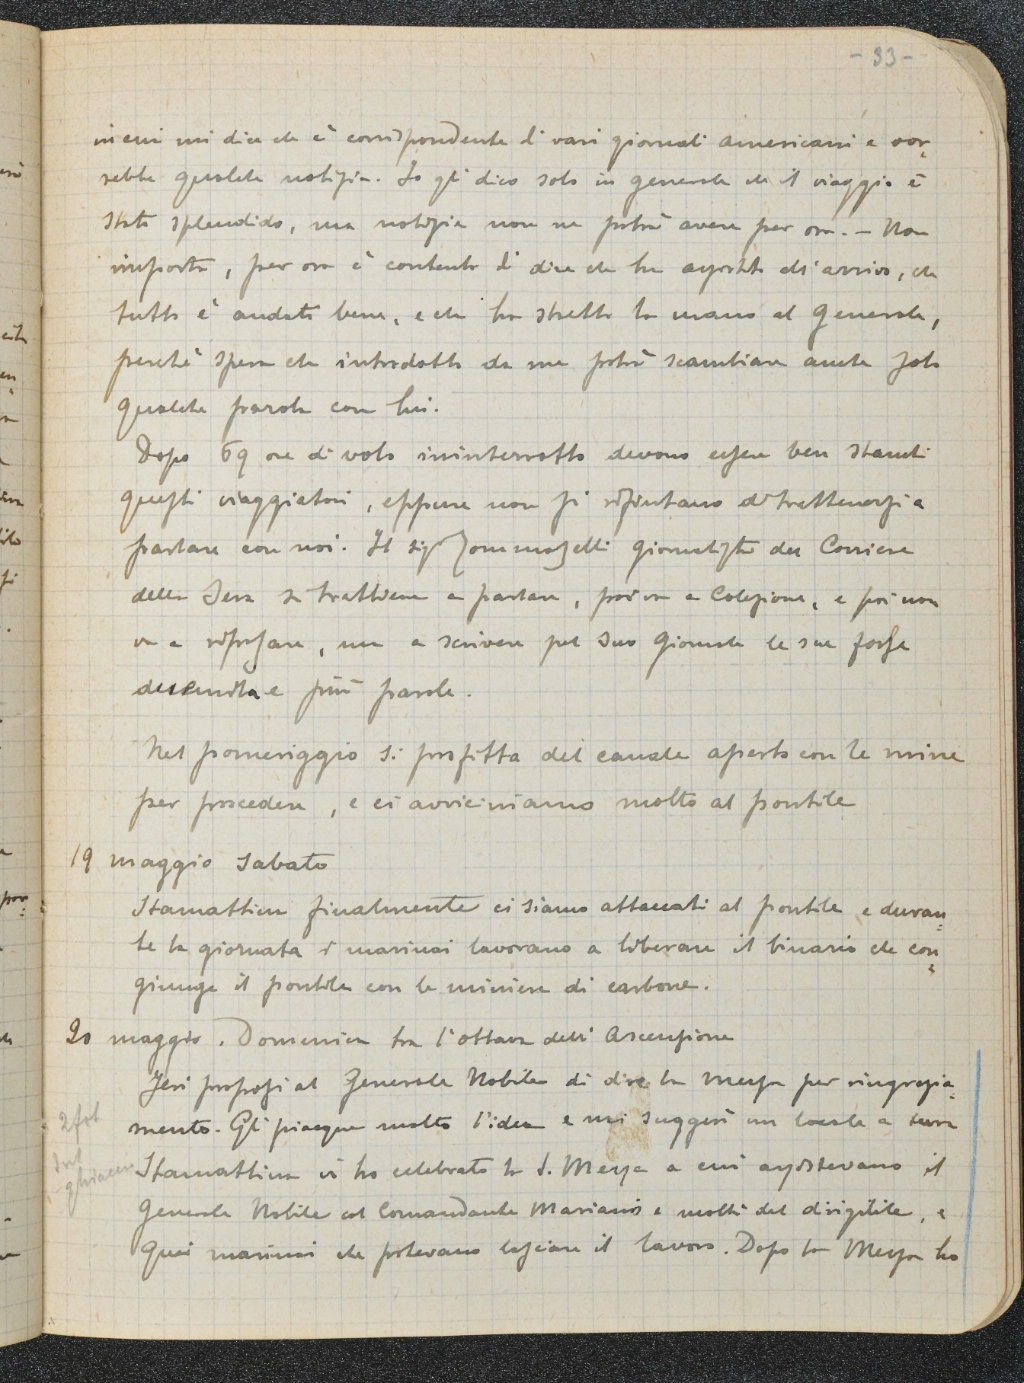 - 33 -
in cui mi dice che è corrispondente di vari giornali americani e vor=
rebbe qualche notizia. Io gli dico solo in generale che il viaggio è
stato splendido, ma notizie non ne potrà avere per ora. - Non
importa, per ora è contento di dire che ha assistito all'arrivo, che
tutto è andato bene, e che ha stretto la mano al Generale,
perché spera che introdotto da me potrà scambiare anche solo
qualche parola con lui.
Dopo 69 ore di volo ininterrotto devono essere ben stanchi
questi viaggiatori, eppure non si rifiutano di trattenersi a
parlare con noi. Il sigr giornalista del Corriere
della Sera si trattiene a parlare, poi va a colezione, e poi non
va a riposare, ma a scrivere pel suo Giornale le sue forse
duecento e più parole.
Nel pomeriggio si profitta del canale aperto con le mine
per procedere, e ci avviciniamo molto al pontile
19 maggio Sabato
Stamattina finalmente ci siamo attaccati al pontile e duran=
te la giornata i marinai lavorano a liberare il binario che con=
giunge il pontile con le miniere di carbone.
20 maggio. Domenica fra l'ottava dell'Ascensione
Jeri proposi al Generale Nobile di dire la Messa per ringrazia=
mento. Gli piacque molto l'idea e mi suggerì un locale a terra
Stamattina vi ho celebrato la S. Messa a cui assistevano il
Generale Nobile col Comandante Mariano e molti del dirigibile, e
quei marinai che potevano lasciare il lavoro. Dopo la Messa ho
2 fot
sul
ghiaccio